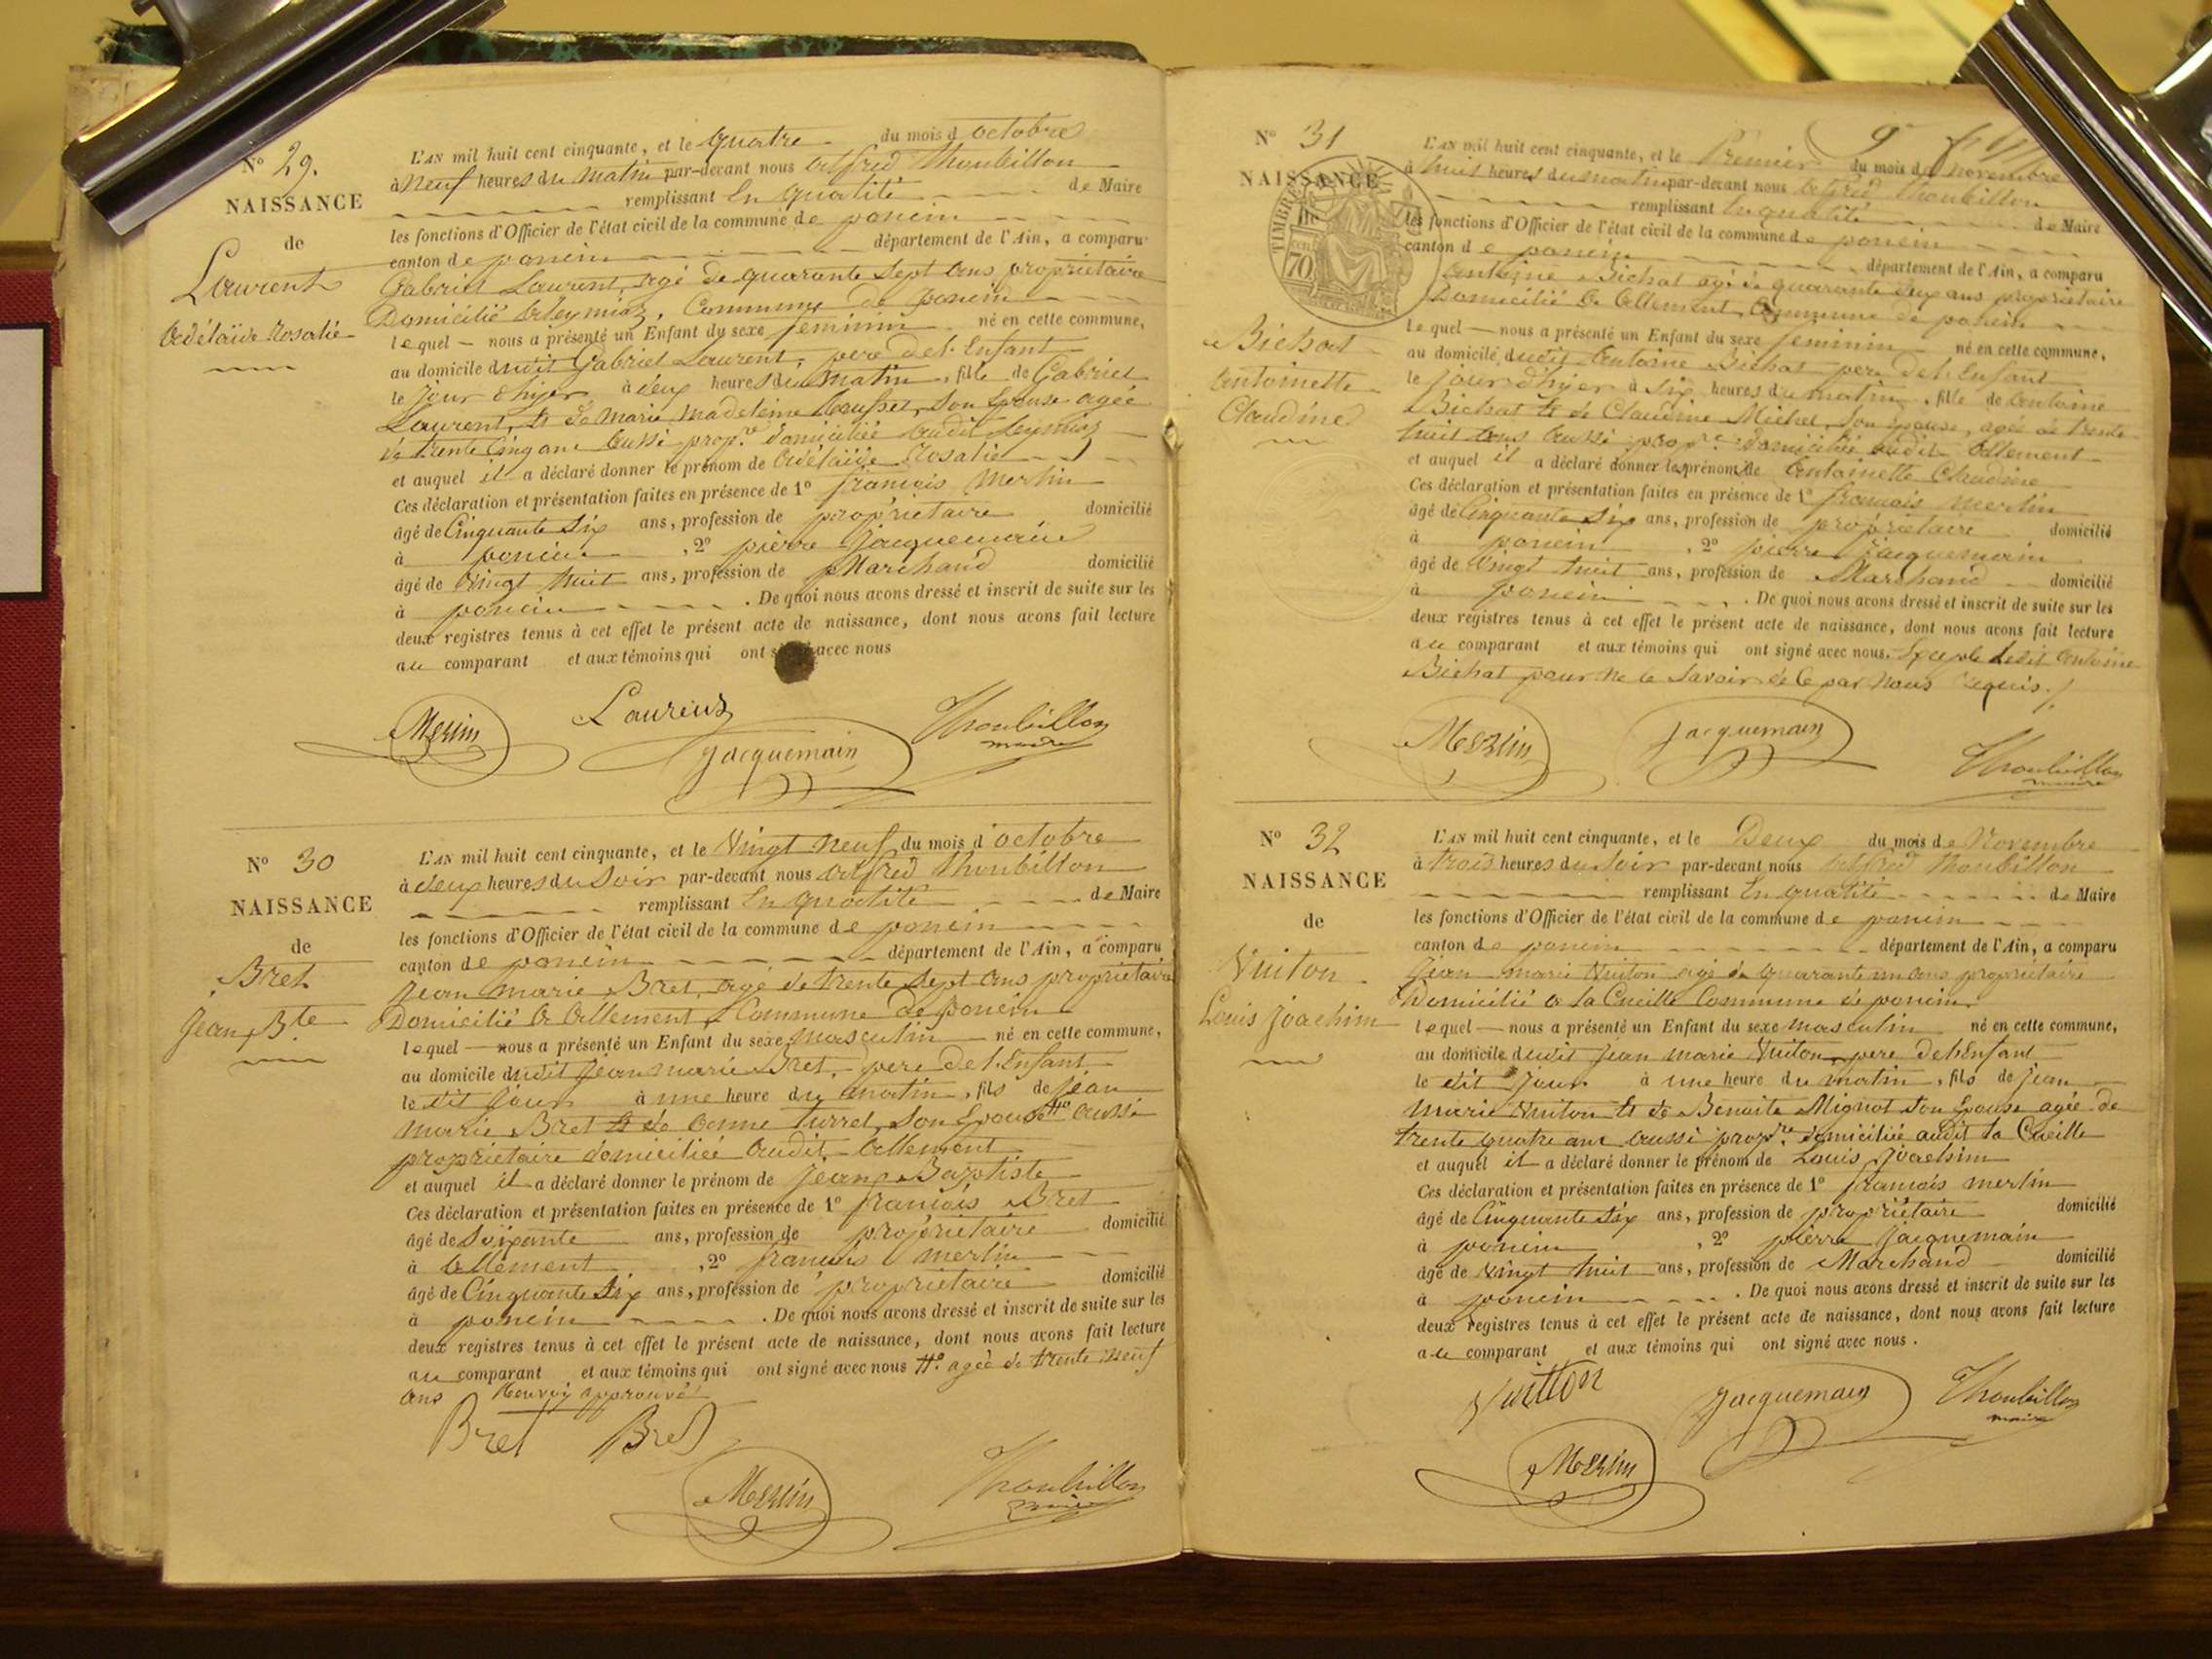 N° 29.
NAISSANCE
de
Laurent
Adélaïde Rosalie
L'AN mil huit cent cinquante, et le quatre du mois d'octobre
à neuf heures du matin par-devant nous alfred thoubillon
remplissant En qualité de Maire
les fonctions d'Officier de l'état civil de la commune de poncin
canton de poncin département de l'Ain, a comparu
Gabriel Laurent, agé de quarante sept ans propriétaire
Domicilié à leymiaz, Commune de poncin
lequel nous a présenté un Enfant du sexe feminin né en cette commune,
au domicile dudit Gabriel Laurent, pere de l'Enfant
le jour d'hier à deux heures du matin, fille de Gabriel
Laurent, et de Marie Madeleine son Epouse agée
de trente cinq ans aussi prop.re domiciliée audit leymiaz
et auquel il a déclaré donner le prénom de Adélaïde Rosalie
Ces déclaration et présentation faites en présence de 1° francois Merlin
âgé de Cinquante Six ans, profession de propriétaire domicilié
à poncin, 2° pierre Jacquemain
âgé de vingt huit ans, profession de Marchand domicilié
à poncin. De quoi nous avons dressé et inscrit de suite sur les
deux registres tenus à cet effet le présent acte de naissance, dont nous avons fait lecture
au comparant et aux témoins qui ont avec nous
Merlin Laurent Jacquemain Thoubillon
maire
N° 30
NAISSANCE
de
Bret
Jean Bte
L'AN mil huit cent cinquante, et le Vingt neuf du mois d'octobre
à deux heures du Soir par-devant nous alfred thoubillon
remplissant En qualité de Maire
les fonctions d'Officier de l'état civil de la commune de poncin
canton de poncin département de l'Ain, a comparu
Jean Marie Bret, agé de trente Sept ans propriétaire
Domicilié à allement, Commune de poncin
lequel nous a présenté un Enfant du sexe masculin né en cette commune,
au domicile dudit Jean marie Bret, pere de l'Enfant
le dit jour à une heure du matin, fils de Jean
Marie Bret et de anne turrel, Son Epouse # aussi
propriétaire domiciliée audit allement
et auquel il a déclaré donner le prénom de Jean Baptiste
Ces déclaration et présentation faites en présence de 1° francois Bret
âgé de soixante ans, profession de propriétaire domicilié
à allement, 2° francois merlin
âgé de Cinquante Six ans, profession de propriétaire domicilié
à poncin. De quoi nous avons dressé et inscrit de suite sur les
deux registres tenus à cet effet le présent acte de naissance, dont nous avons fait lecture
au comparant et aux témoins qui ont signé avec nous #° agée de trente neuf
ans Renvoi approuvé
Bret Bret
Merlin Thoubillon
maire
N° 31
NAISSANCE
TIMBRE
70
Bichat
antoinette
Claudine
L'AN mil huit cent cinquante, et le Premier du mois de novembre
à huit heures du matin par-devant nous alfred thoubillon
remplissant En qualité de Maire
les fonctions d'Officier de l'état civil de la commune de poncin
canton de poncin département de l'Ain, a comparu
antoine Bichat agé de quarante deux ans propriétaire
Domicilié à allement, Commune de poncin
lequel nous a présenté un Enfant du sexe feminin né en cette commune,
au domicile dudit antoine Bichat pere de l'Enfant
le jour d'hier à six heures du matin, fille de antoine
Bichat et de Claudine Michel, Son épouse, agée de trente
huit ans aussi prop.re Domiciliée audit allement
et auquel il a déclaré donner les prénoms de antoinette Claudine
Ces déclaration et présentation faites en présence de 1° francois merlin
âgé de Cinquante Six ans, profession de propriétaire domicilié
à poncin, 2° pierre Jacquemain
âgé de vingt huit ans, profession de Marchand domicilié
à poncin. De quoi nous avons dressé et inscrit de suite sur les
deux registres tenus à cet effet le présent acte de naissance, dont nous avons fait lecture
au comparant et aux témoins qui ont signé avec nous. Excepté ledit antoine
Bichat pour ne le Savoir de ce par nous requis
Merlin Jacquemain Thoubillon
maire
N° 32
NAISSANCE
de
Vuiton
Louis Joachim
L'AN mil huit cent cinquante, et le Deux du mois de Novembre
à trois heures du Soir par-devant nous alfred thoubillon
remplissant En qualité de Maire
les fonctions d'Officier de l'état civil de la commune de poncin
canton de poncin département de l'Ain, a comparu
Jean marie Vuiton agé de quarante un ans propriétaire
Domicilié à la Cueille Commune de poncin
lequel nous a présenté un Enfant du sexe masculin né en cette commune,
au domicile dudit Jean marie Vuiton, pere de l'Enfant
le dit jour à une heure du matin, fils de Jean
Marie Vuiton et de Benoite Mignot Son Epouse agée de
trente quatre ans aussi prop.re domiciliée audit la Cueille
et auquel il a déclaré donner le prénom de Louis Joachim
Ces déclaration et présentation faites en présence de 1° francois merlin
âgé de Cinquante Six ans, profession de propriétaire domicilié
à poncin, 2° pierre Jacquemain
âgé de vingt huit ans, profession de Marchand domicilié
à poncin. De quoi nous avons dressé et inscrit de suite sur les
deux registres tenus à cet effet le présent acte de naissance, dont nous avons fait lecture
au comparant et aux témoins qui ont signé avec nous.
Vuitton Jacquemain Thoubillon
maire
Merlin